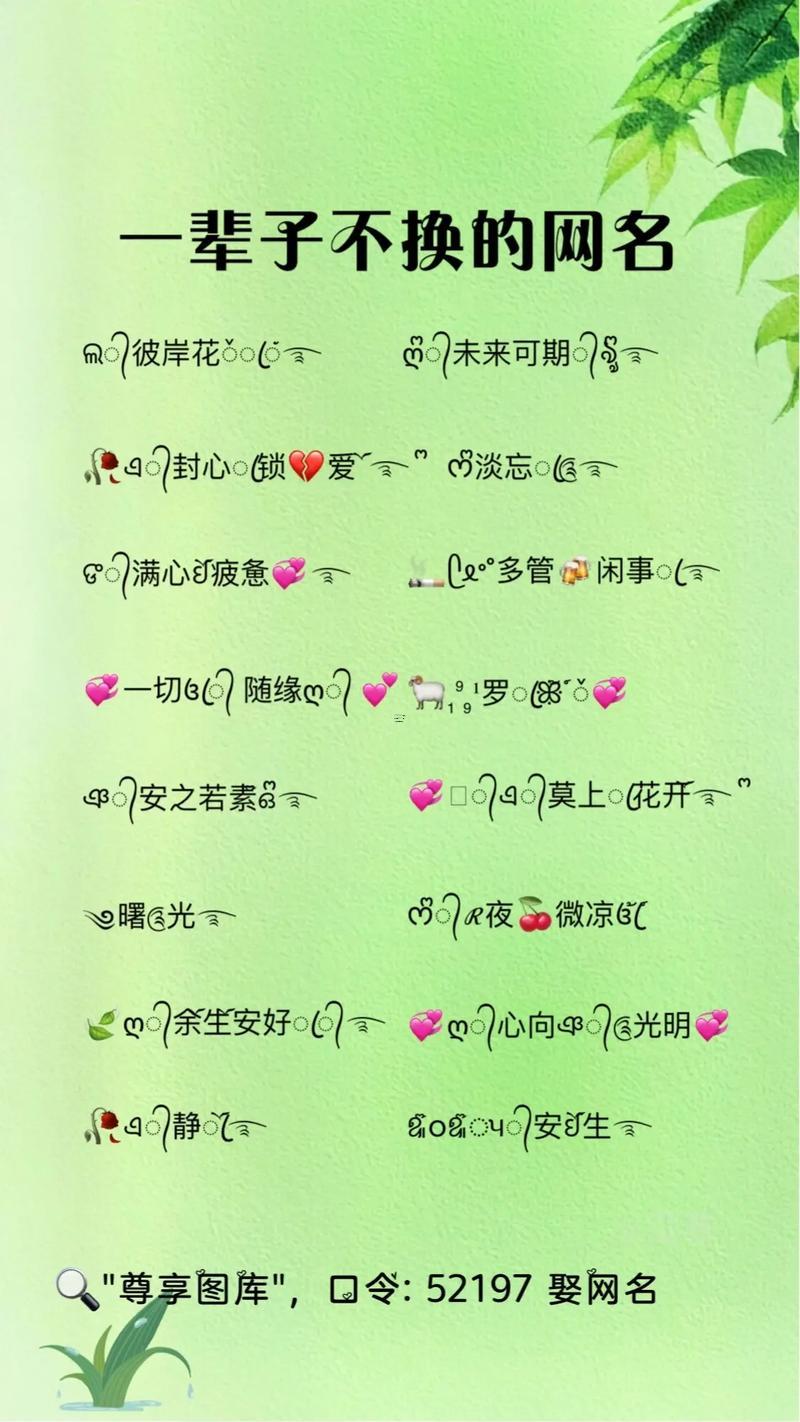 一辈子不换的网名
ଲ ᭄彼岸花 ꦿ℘゜এ
ღ᭄未来可期ꦿ᭄
🥀এ᭄封心ꦿ锁💔爱࿐ღ
ღ淡忘ꦿ࿐
ဇ᭄满心ꦿ疲惫💞࿐
🚬多管🍻闲事ꦿ࿐
💞一切ꦿ᭄随缘ღ᭄💕
🐏₁⁹₉¹罗ꦿ💞
ঞ᭄安之若素ꦿ࿐
💞এ᭄莫上ꦿ花开࿐ღ
༄曙ꦿ光࿐
ღ᭄ℛ夜🍒微凉ꦿ
🍃ღ᭄余生安好ꦿ᭄࿐
💞ღ᭄心向ঞ᭄ꦿ光明💞
🥀এ᭄静ꦿ࿐
᭄安ꦿ生࿐
🔍"尊享图库"，口令: 52197 娶网名